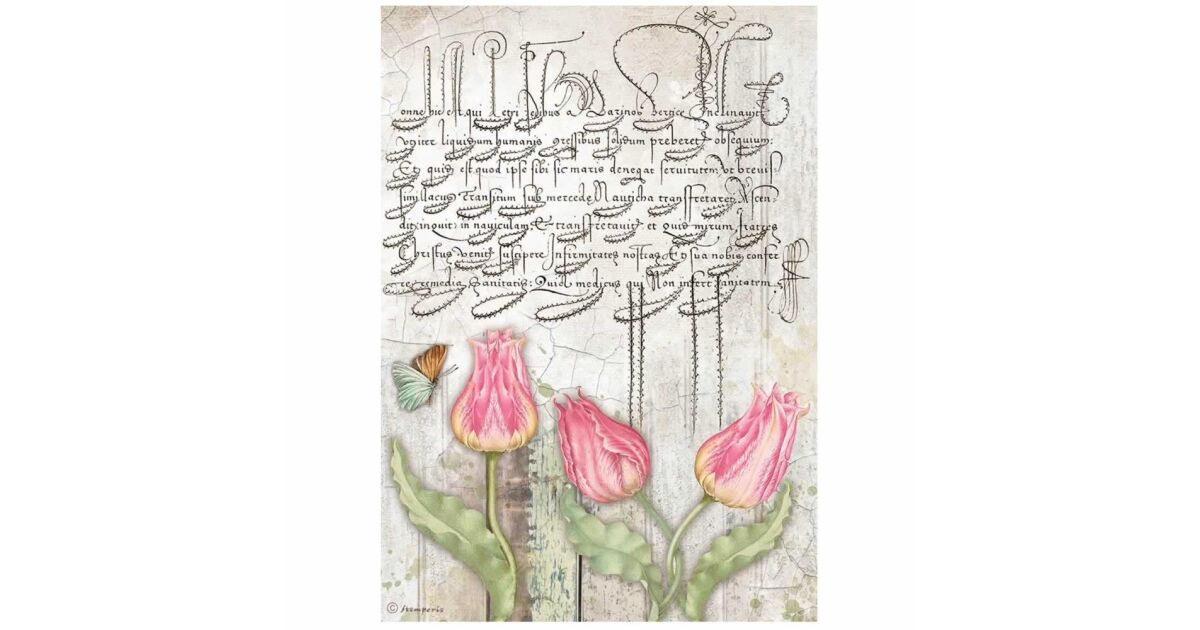 onne hic est qui Petri pedibus a Marinos Vertice Inclinavit
liquidum humanis gressibus solidum preberet obsequium:
Et quid est quod ipse sibi sic maris denegat servitutem: Vt brevissimi
lacus Transitum sub mercede Nauticha transfretaret: Ascen-
dit: inquit: in naviculam Et transfretavit et Quid mirum fratres
Christus venit suscipere Infirmitates nostras Et sua nobis confer
re remedia Sanitatis: Quia medicus qui Non infert sanitatem
© Stamperia